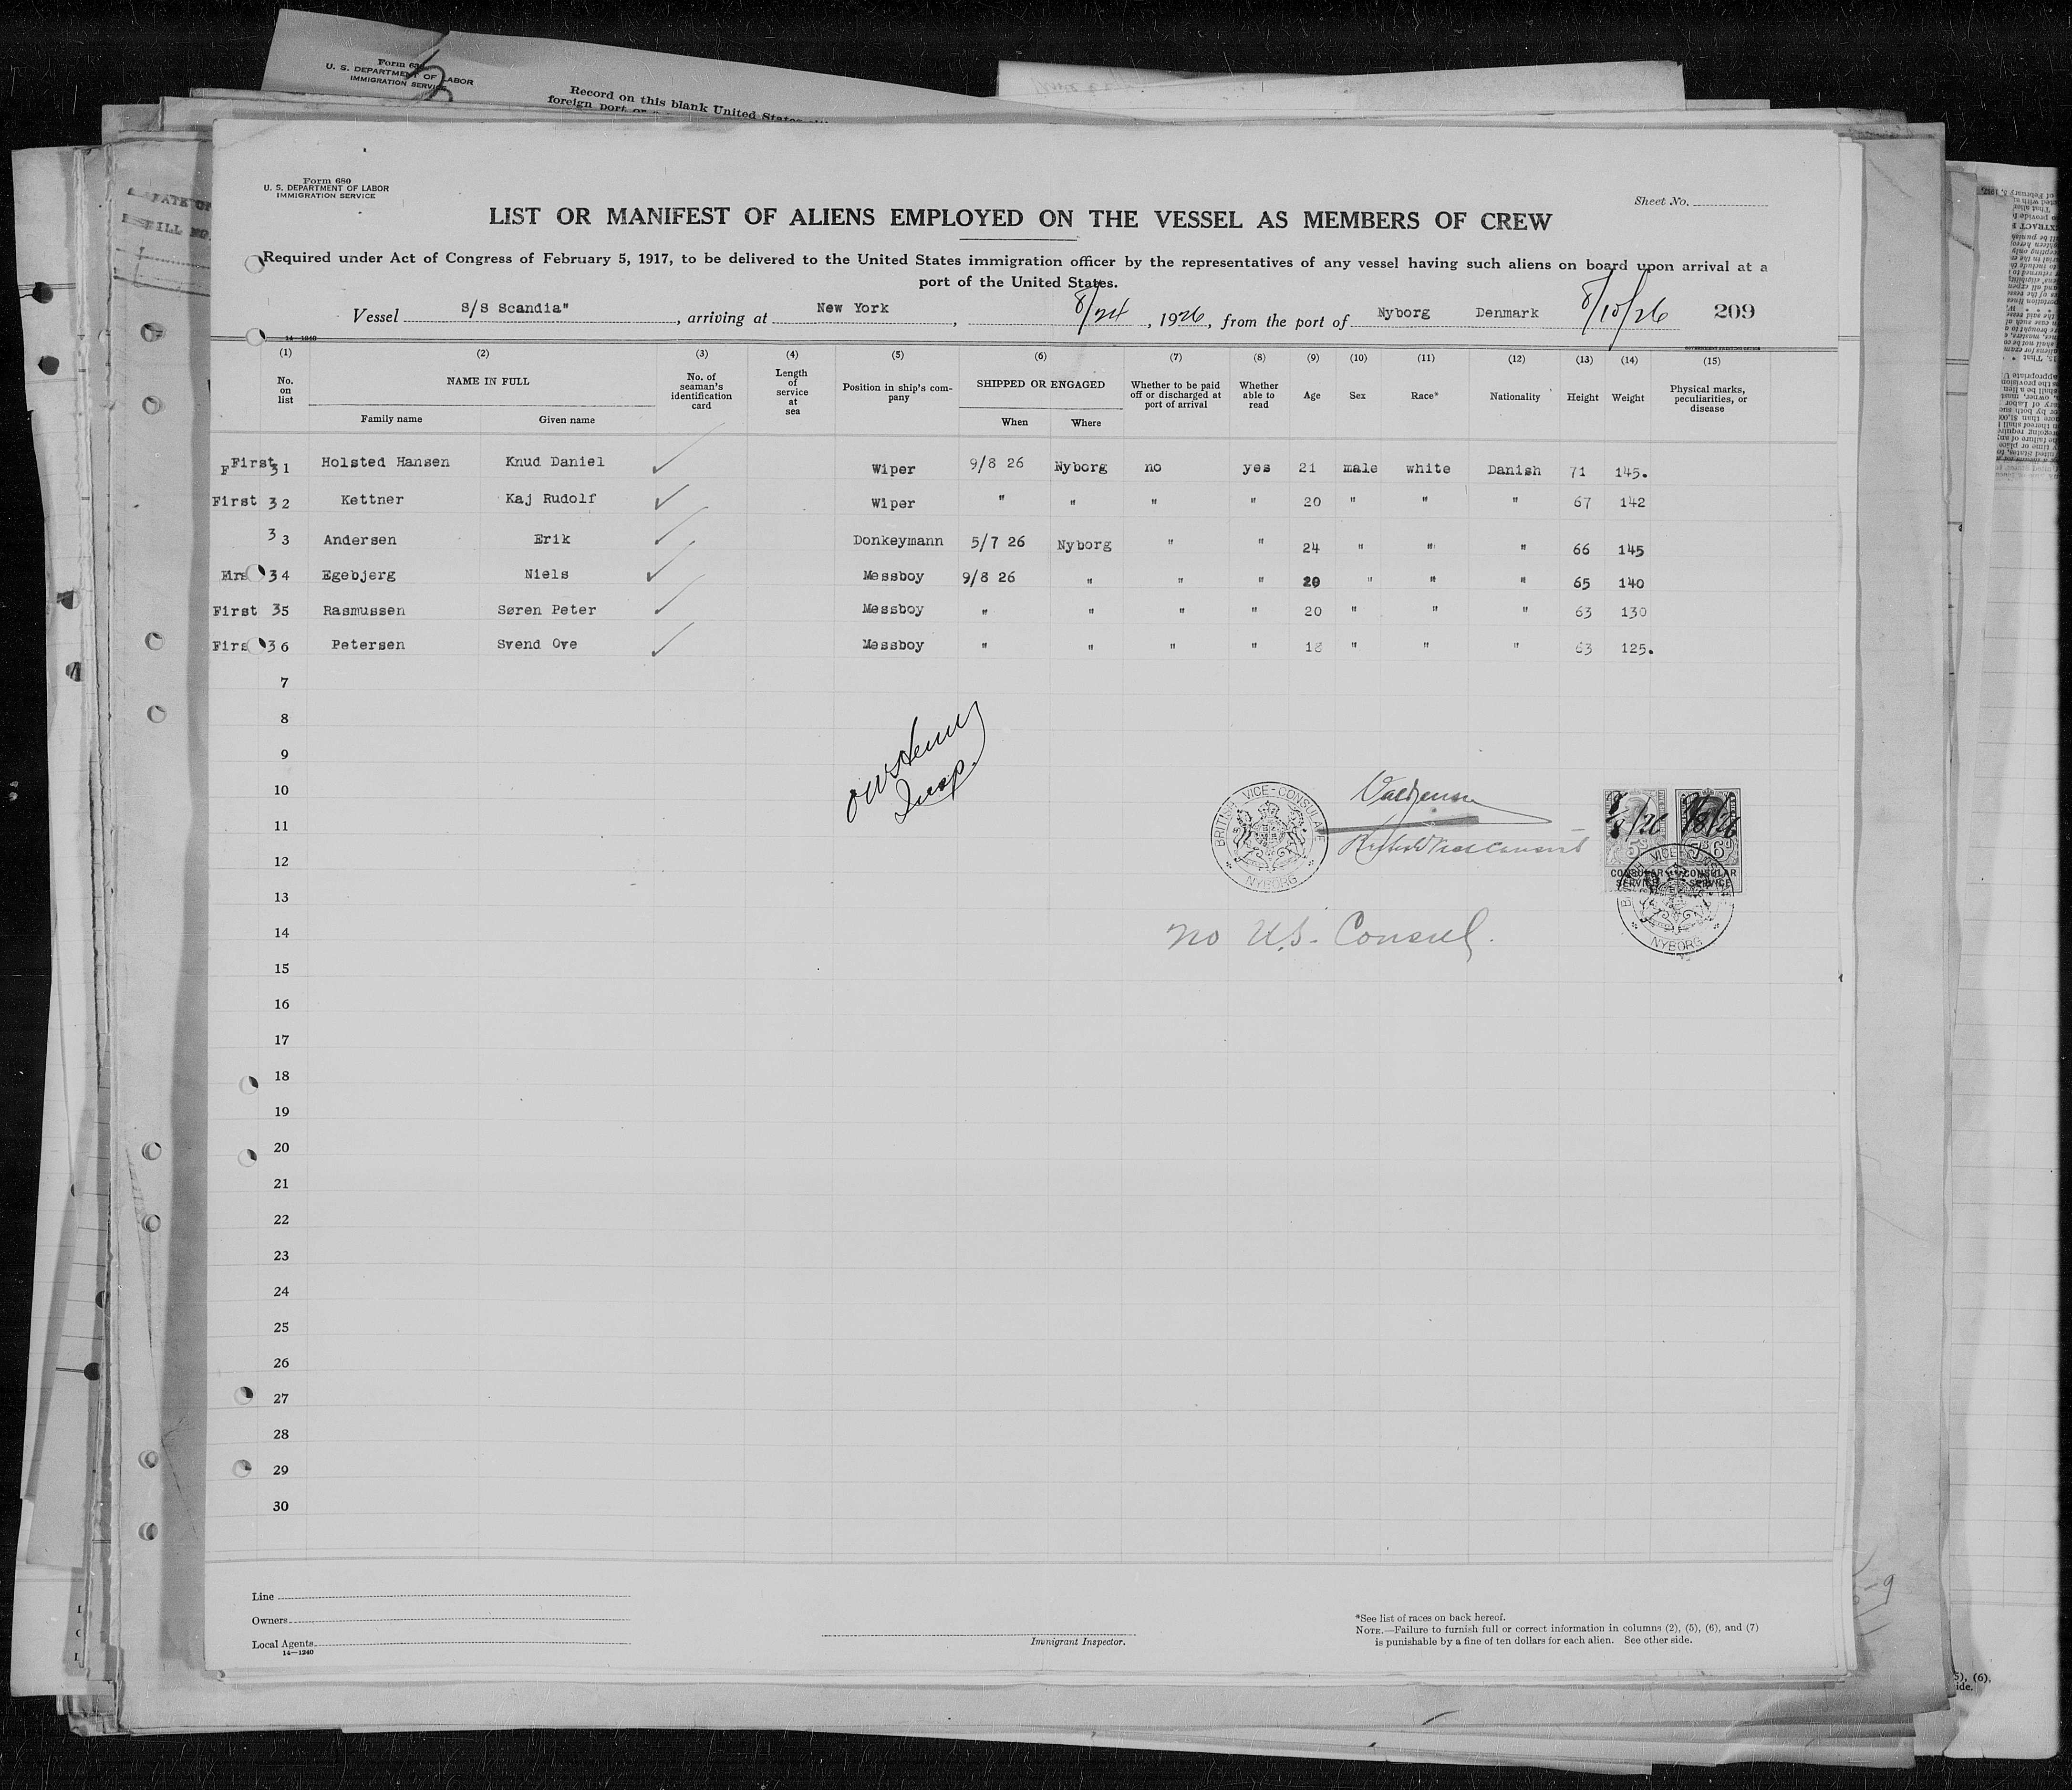 Form 680
U. S. DEPARTMENT OF LABOR
IMMIGRATION SERVICE
Record on this blank United States
foreign port or
Form 680
U. S. DEPARTMENT OF LABOR
IMMIGRATION SERVICE
Sheet No.
LIST OR MANIFEST OF ALIENS EMPLOYED ON THE VESSEL AS MEMBERS OF CREW
Required under Act of Congress of February 5, 1917, to be delivered to the United States immigration officer by the representatives of any vessel having such aliens on board upon arrival at a
port of the United States.
Vessel S/S Scandia", arriving at New York, 8/24, 1926, from the port of Nyborg Denmark 8/10/26 209
14—1240
(1) (2) (3) (4) (5) (6) (7) (8) (9) (10) (11) (12) (13) (14) (15)
No. on list NAME IN FULL Family name Given name No. of seaman's identification card Length of service at sea Position in ship's company SHIPPED OR ENGAGED When Where Whether to be paid off or discharged at port of arrival Whether able to read Age Sex Race* Nationality Height Weight Physical marks, peculiarities, or disease
First 31 Holsted Hansen Knud Daniel ✓ Wiper 9/8 26 Nyborg no yes 21 male white Danish 71 145.
First 32 Kettner Kaj Rudolf ✓ Wiper " " " " 20 " " " 67 142
33 Andersen Erik ✓ Donkeymann 5/7 26 Nyborg " " 24 " " " 66 145
Firs 34 Egebjerg Niels ✓ Messboy 9/8 26 " " " 20 " " " 65 140
First 35 Rasmussen Søren Peter ✓ Messboy " " " " 20 " " " 63 130
Firs 36 Petersen Svend Ove ✓ Messboy " " " " 18 " " " 63 125.
7
8
9
10
11
12
13
14
15
16
17
18
19
20
21
22
23
24
25
26
27
28
29
30
Insp.
BRITISH VICE-CONSULATE
NYBORG
CONSULAR SERVICE
CONSULAR SERVICE
NYBORG
no U.S. Consul.
Line
Owners
Local Agents
14—1240
Immigrant Inspector.
*See list of races on back hereof.
NOTE.—Failure to furnish full or correct information in columns (2), (5), (6), and (7)
is punishable by a fine of ten dollars for each alien. See other side.